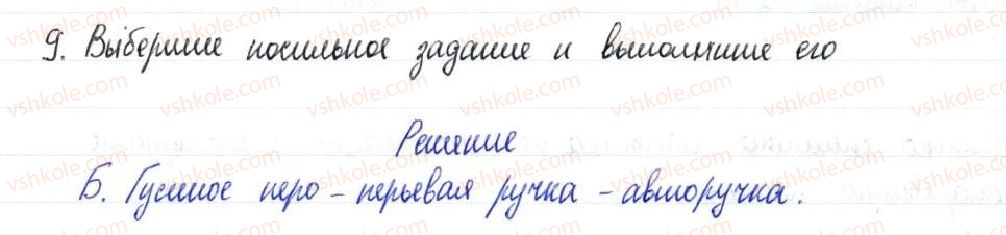 9. Выберите посильное задание и выполните его
Решение
Б. Гусиное перо – перьевая ручка – авторучка.